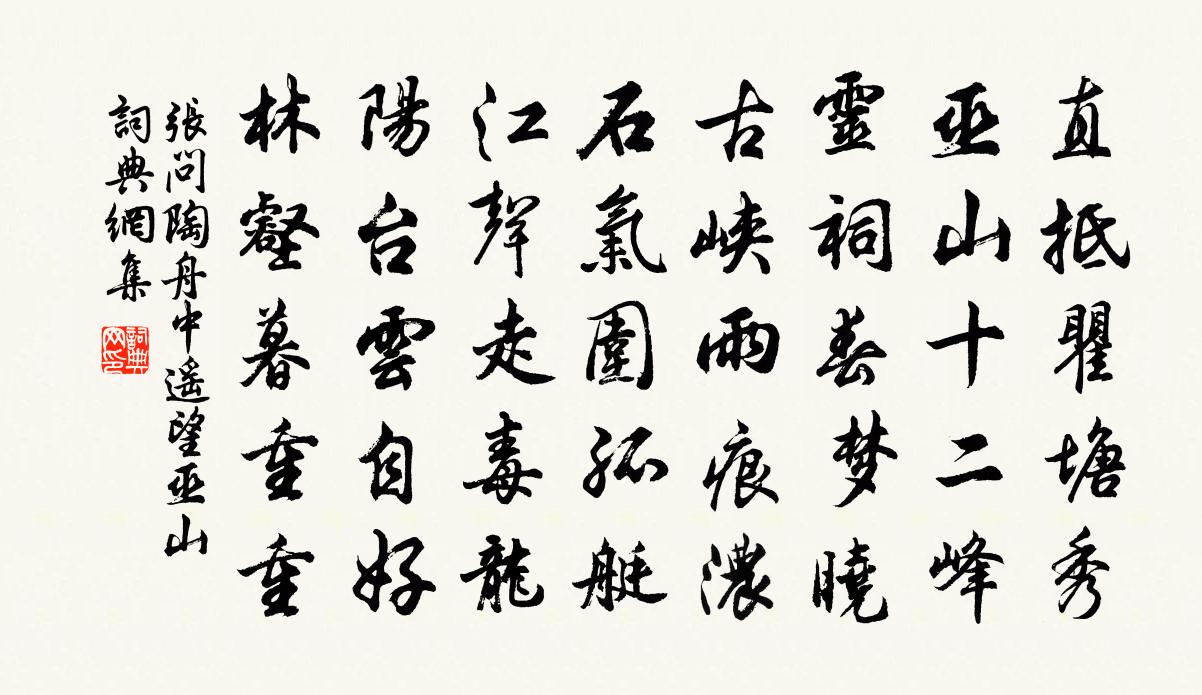 直抵瞿塘秀
巫山十二峰
靈祠春梦曉
古峽雨痕濃
石氣圍孤艇
江聲走毒龍
陽台雲自好
林壑暮重重
張問陶舟中遥望巫山
詞典網集
詞典网印